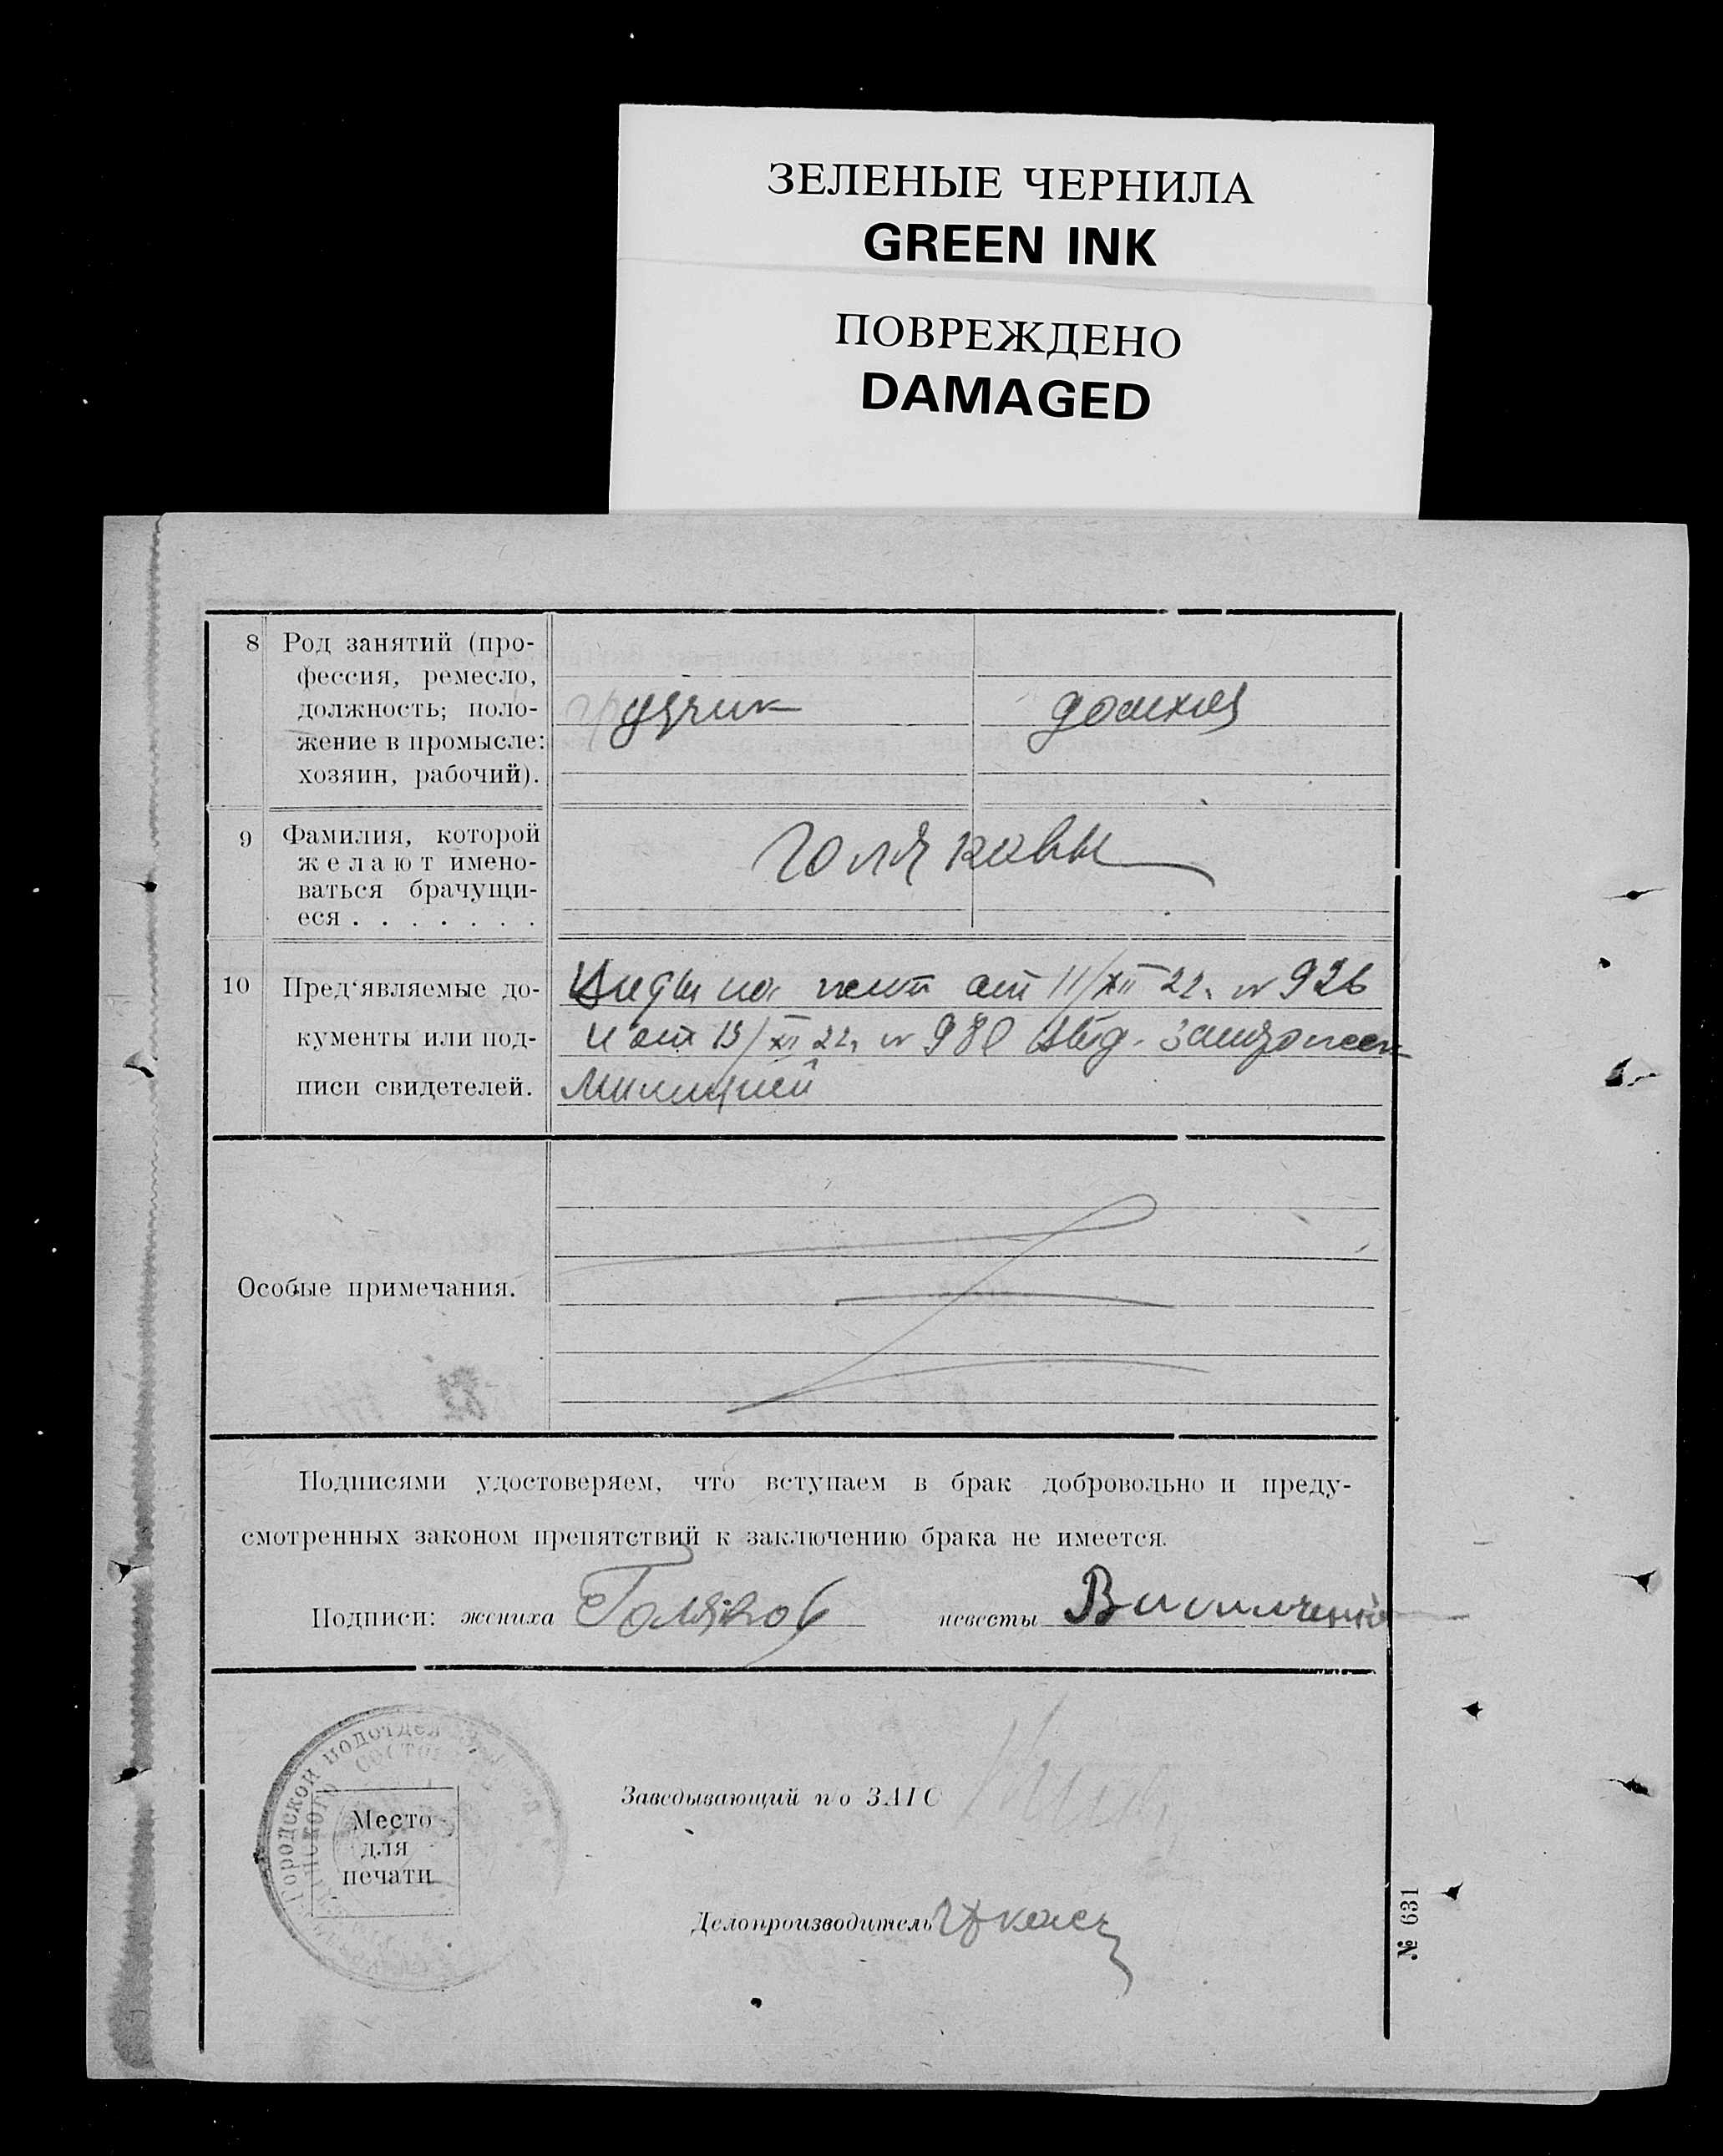 ЗЕЛЕНЫЕ ЧЕРНИЛА
GREEN INK
ПОВРЕЖДЕНО
DAMAGED
8 Род занятий (про-
фессия, ремесло,
должность; поло-
жение в промысле:
хозяин, рабочий).
грузчик
домхоз
9 Фамилия, которой
желают имено-
ваться брачущи-
еся . . . . . . .
Голяковы
10 Пред'являемые до-
кументы или под-
писи свидетелей.
Виды на жит от 11/XII 22. № 926
и от 13/XI 22, № 980 Выд.
милицией
Особые примечания.
Подписями удостоверяем, что вступаем в брак добровольно и преду-
смотренных законом препятствий к заключению брака не имеется.
Подписи: жениха Голяков невесты
Городской подотдел
Место
для
печати
Заведывающий п/о ЗАГС
Делопроизводитель
№ 631